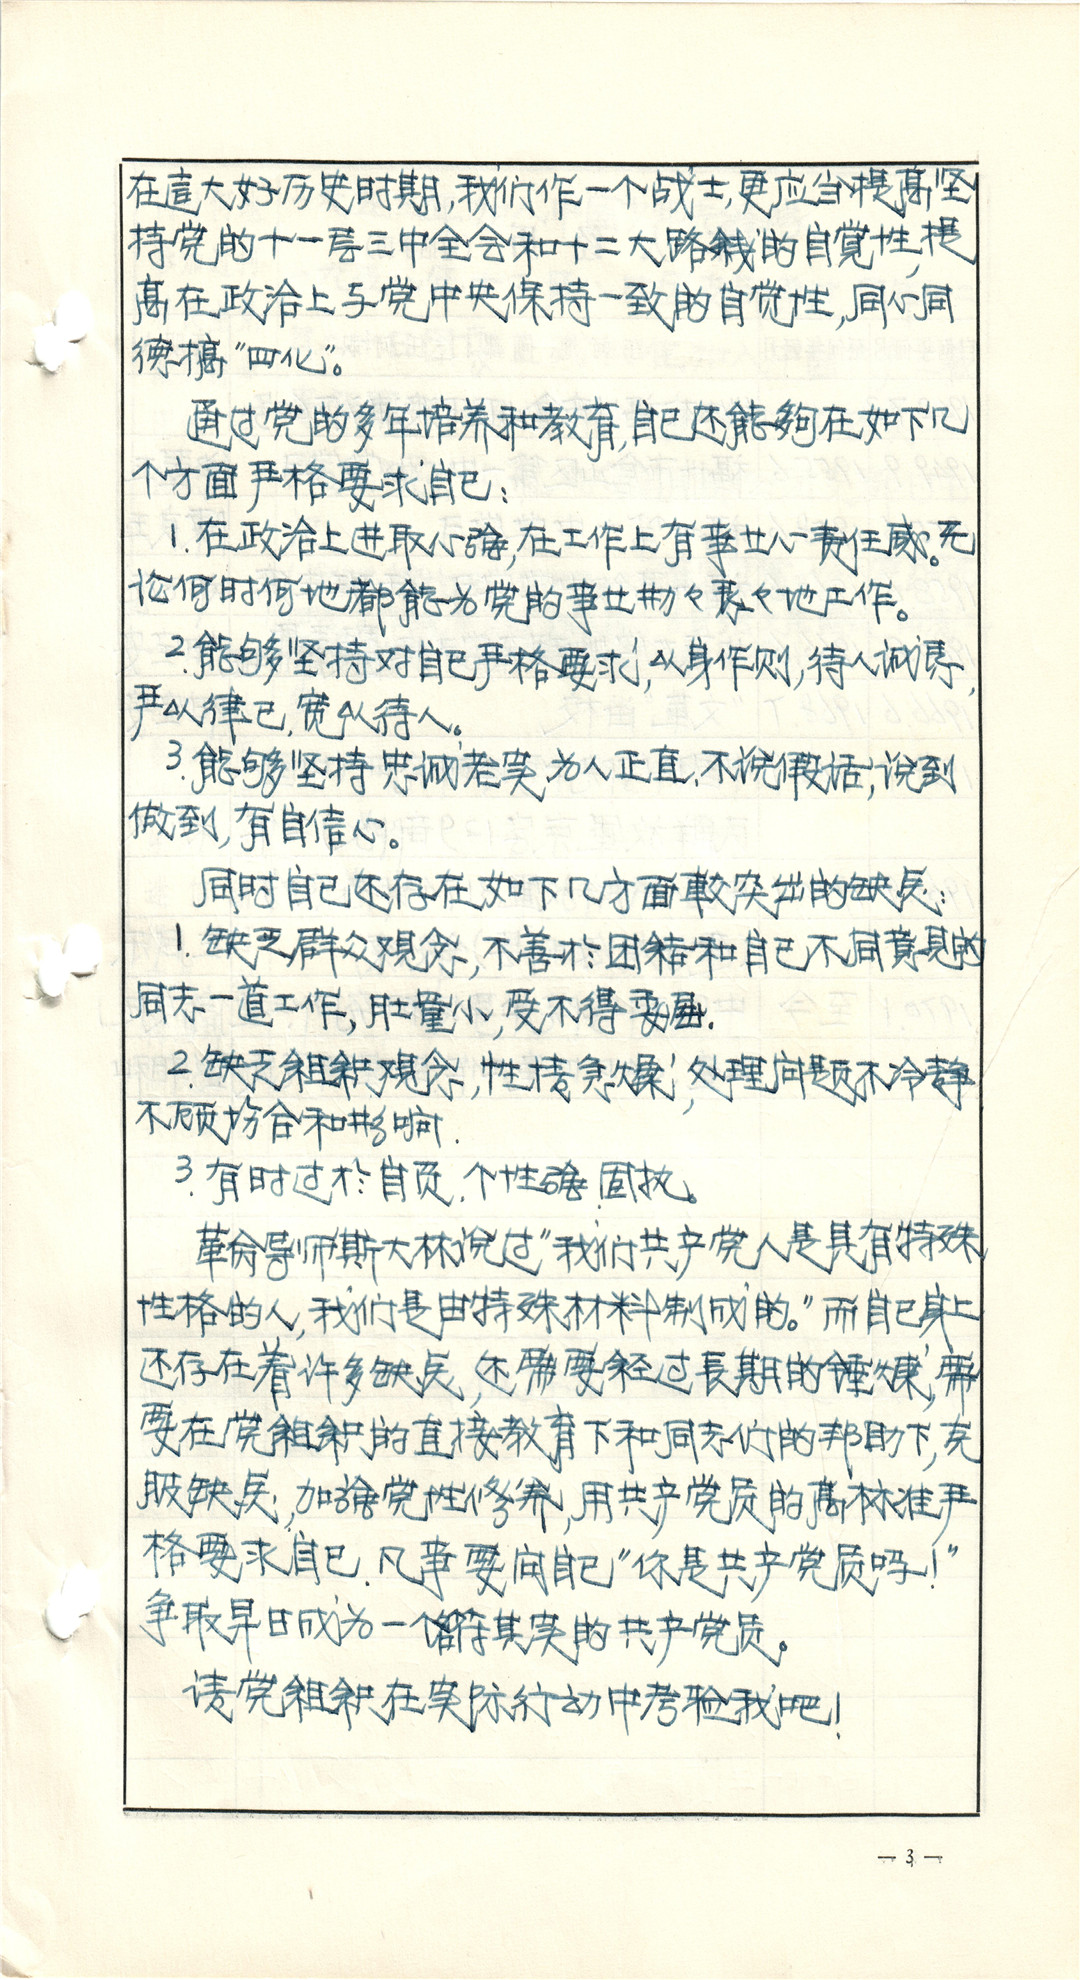 在这大好历史时期,我们作一个战士,更应当提高坚
持党的十一届三中全会和十二大路线的自觉性,提
高在政治上与党中央保持一致的自觉性,同心同
德搞"四化"。
通过党的多年培养和教育,自己还能够在如下几
个方面严格要求自己:
1.在政治上进取心强,在工作上有事业心责任感。无
论何时何地都能为党的事业勤々恳々地工作。
2.能够坚持对自己严格要求,以身作则,待人诚恳,
严以律己,宽以待人。
3.能够坚持忠诚老实.为人正直.不说假话,说到
做到,有自信心。
同时自己还存在如下几方面較突出的缺点:
1.缺乏群众观念,不善於团结和自己不同意見的
同志一道工作,肚量小,受不得委屈.
2.缺乏组织观念,性情急燥,处理问题不冷静
不顾场合和影响.
3.有时过於自负.个性强.固执。
革命导师斯大林说过"我们共产党人是具有特殊
性格的人,我们是由特殊材料制成的。"而自己身上
还存在着许多缺点,还需要经过長期的锤煉,需
要在党组织的直接教育下和同志们的邦助下,克
服缺点,加强党性修养,用共产党员的高标准严
格要求自己.凡事要问自己"你是共产党员吗!"
争取早日成为一个名符其实的共产党员。
请党组织在实际行动中考验我吧!
— 3 —